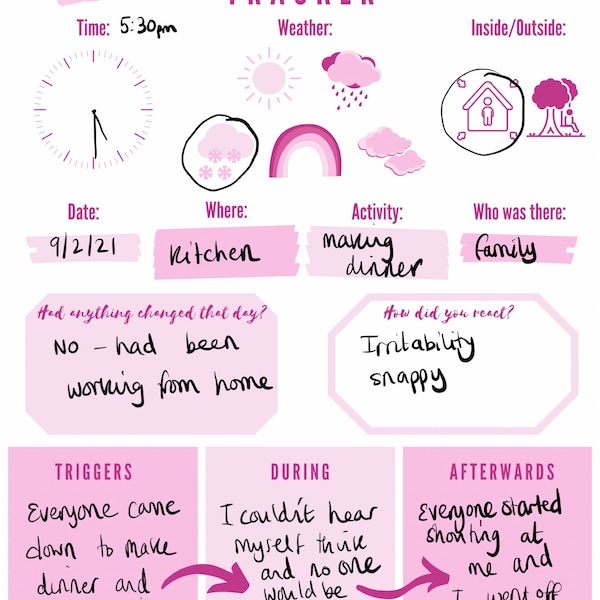 TRACKER
Time: 5:30pm Weather: Inside/Outside:
Date: Where: Activity: Who was there:
9/2/21 Kitchen making dinner family
Had anything changed that day?
No - had been
working from home
How did you react?
Irritability
snappy
TRIGGERS
Everyone came
down to make
dinner and
DURING
I couldn't hear
myself think
and no one
would be
AFTERWARDS
Everyone started
shouting at
me and
I went off